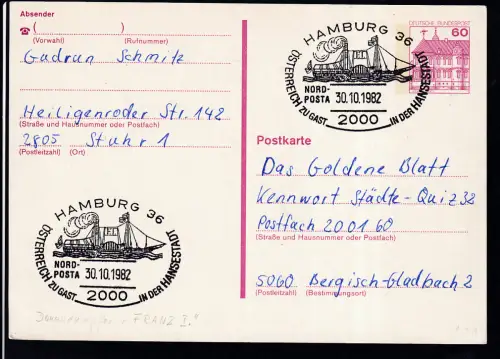 Absender
( )
(Vorwahl) (Rufnummer)
Gudrun Schmitz
Heiligenroder Str. 142
(Straße und Hausnummer oder Postfach)
2805 Stuhr 1
(Postleitzahl) (Ort)
HAMBURG 36
NORD-
POSTA 30.10.1982
2000
ÖSTERREICH ZU GAST IN DER HANSESTADT
DEUTSCHE BUNDESPOST
60
Postkarte
Das Goldene Blatt
Kennwort Städte-Quiz 32
Postfach 20 01 60
(Straße und Hausnummer oder Postfach)
5060 Bergisch-Gladbach 2
(Postleitzahl) (Bestimmungsort)
HAMBURG 36
NORD-
POSTA 30.10.1982
2000
ÖSTERREICH ZU GAST IN DER HANSESTADT
FRANZ I."